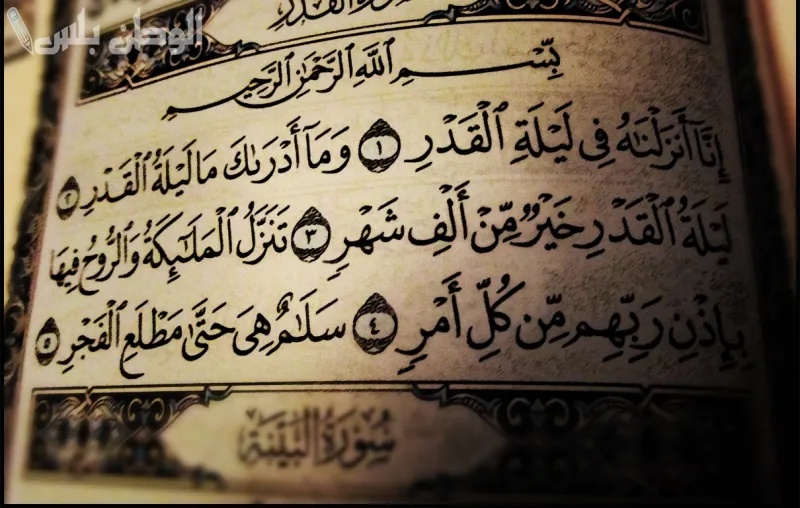 الوطن بلس
القدر
بِسْمِ ٱللَّهِ ٱلرَّحْمَٰنِ ٱلرَّحِيمِ
إِنَّآ أَنزَلْنَٰهُ فِى لَيْلَةِ ٱلْقَدْرِ ١ وَمَآ أَدْرَىٰكَ مَا لَيْلَةُ ٱلْقَدْرِ ٢
لَيْلَةُ ٱلْقَدْرِ خَيْرٌ مِّنْ أَلْفِ شَهْرٍ ٣ تَنَزَّلُ ٱلْمَلَٰٓئِكَةُ وَٱلرُّوحُ فِيهَا
بِإِذْنِ رَبِّهِم مِّن كُلِّ أَمْرٍ ٤ سَلَٰمٌ هِىَ حَتَّىٰ مَطْلَعِ ٱلْفَجْرِ ٥
سُورَةُ البَيِّنَةِ